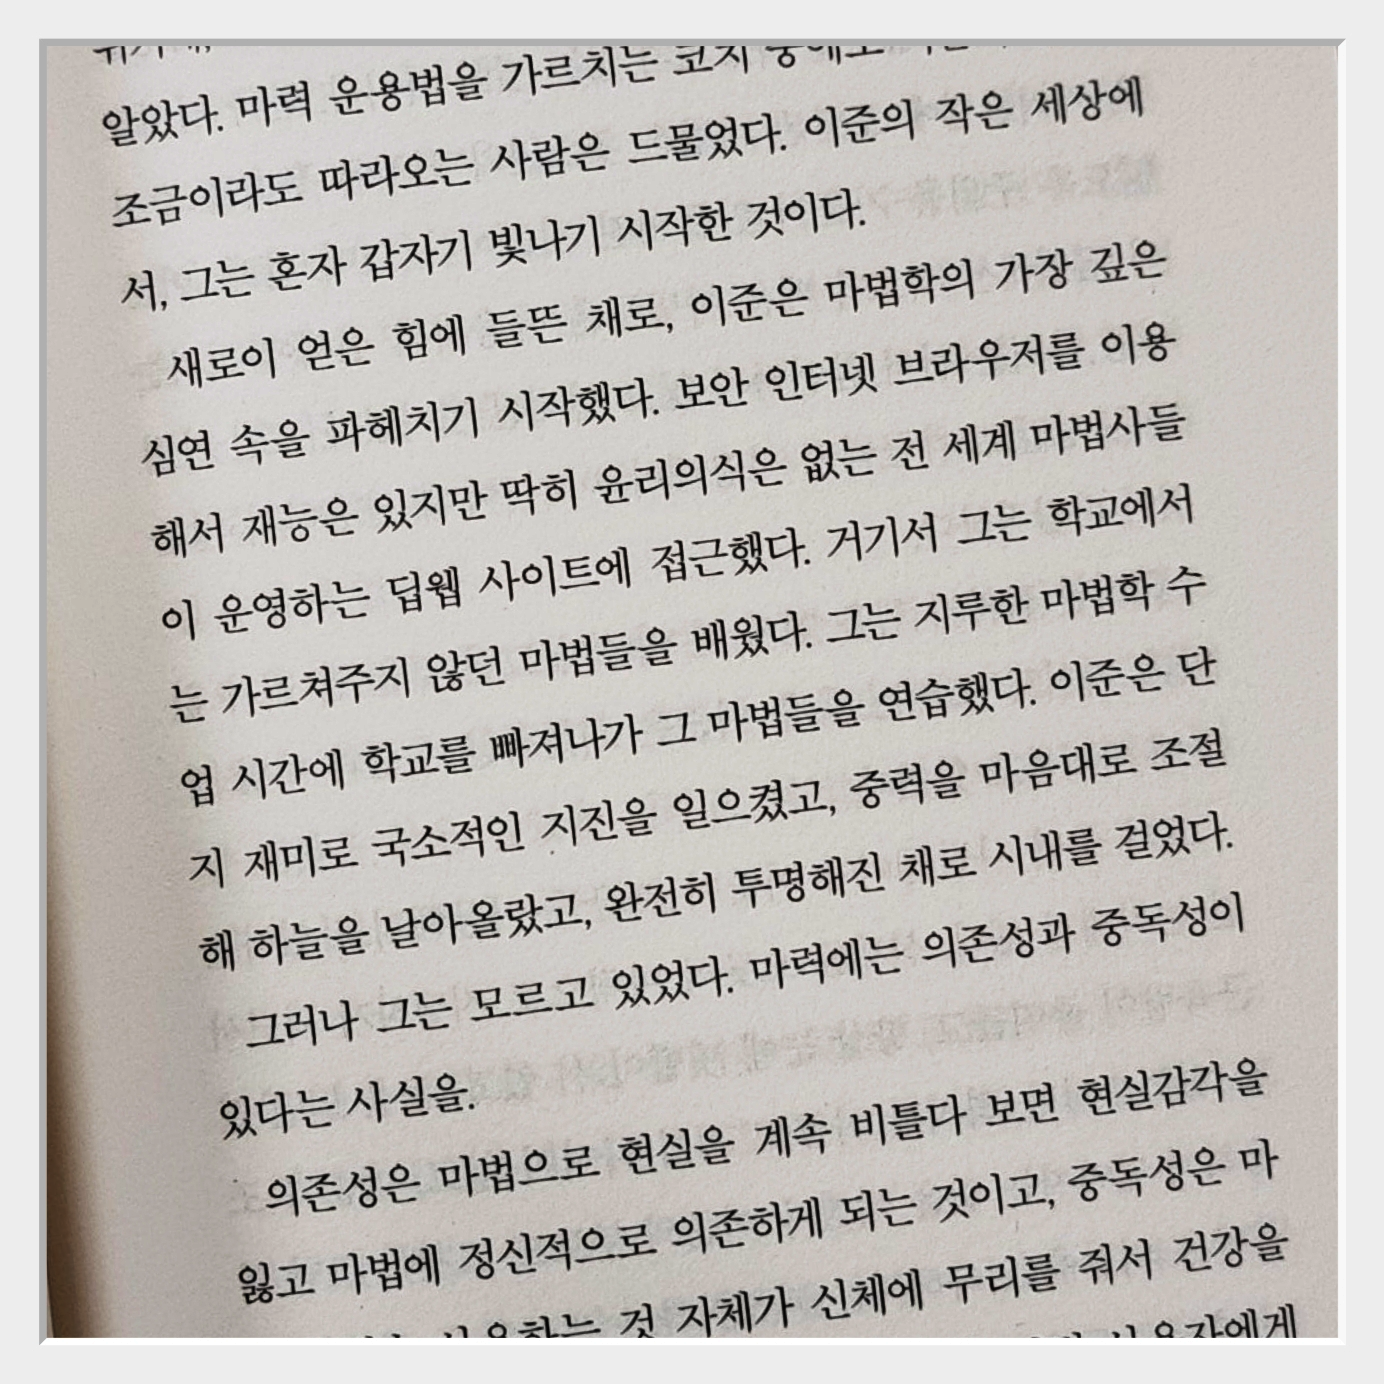 알았다. 마력 운용법을 가르치는 코치 중에도
조금이라도 따라오는 사람은 드물었다. 이준의 작은 세상에
서, 그는 혼자 갑자기 빛나기 시작한 것이다.
새로이 얻은 힘에 들뜬 채로, 이준은 마법학의 가장 깊은
심연 속을 파헤치기 시작했다. 보안 인터넷 브라우저를 이용
해서 재능은 있지만 딱히 윤리의식은 없는 전 세계 마법사들
이 운영하는 딥웹 사이트에 접근했다. 거기서 그는 학교에서
는 가르쳐주지 않던 마법들을 배웠다. 그는 지루한 마법학 수
업 시간에 학교를 빠져나가 그 마법들을 연습했다. 이준은 단
지 재미로 국소적인 지진을 일으켰고, 중력을 마음대로 조절
해 하늘을 날아올랐고, 완전히 투명해진 채로 시내를 걸었다.
그러나 그는 모르고 있었다. 마력에는 의존성과 중독성이
있다는 사실을.
의존성은 마법으로 현실을 계속 비틀다 보면 현실감각을
잃고 마법에 정신적으로 의존하게 되는 것이고, 중독성은 마
것 자체가 신체에 무리를 줘서 건강을